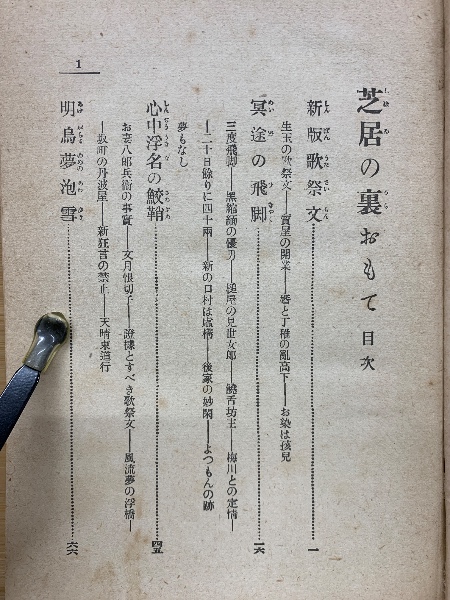 芝居の裏おもて 目次
新版歌祭文 一
生玉の歌祭文――質屋の開業――番と丁稚の亂高下――お染は孩兒
冥途の飛脚 一六
三度飛脚――黑縮緬の優刀――槌屋の見世女郎――饒舌坊主――梅川との定情―
―二十日餘りに四十兩――新の口村は虛構――後家の妙閑――よつもんの跡
夢もなし
心中浮名の鮫鞘 四五
お妻八郎兵衞の事實――文月恨切子――證據とすべき歌祭文――風流夢の浮橋―
―坂町の丹波屋――新狂言の禁止――天晴東道行
明烏夢泡雪 六六
1